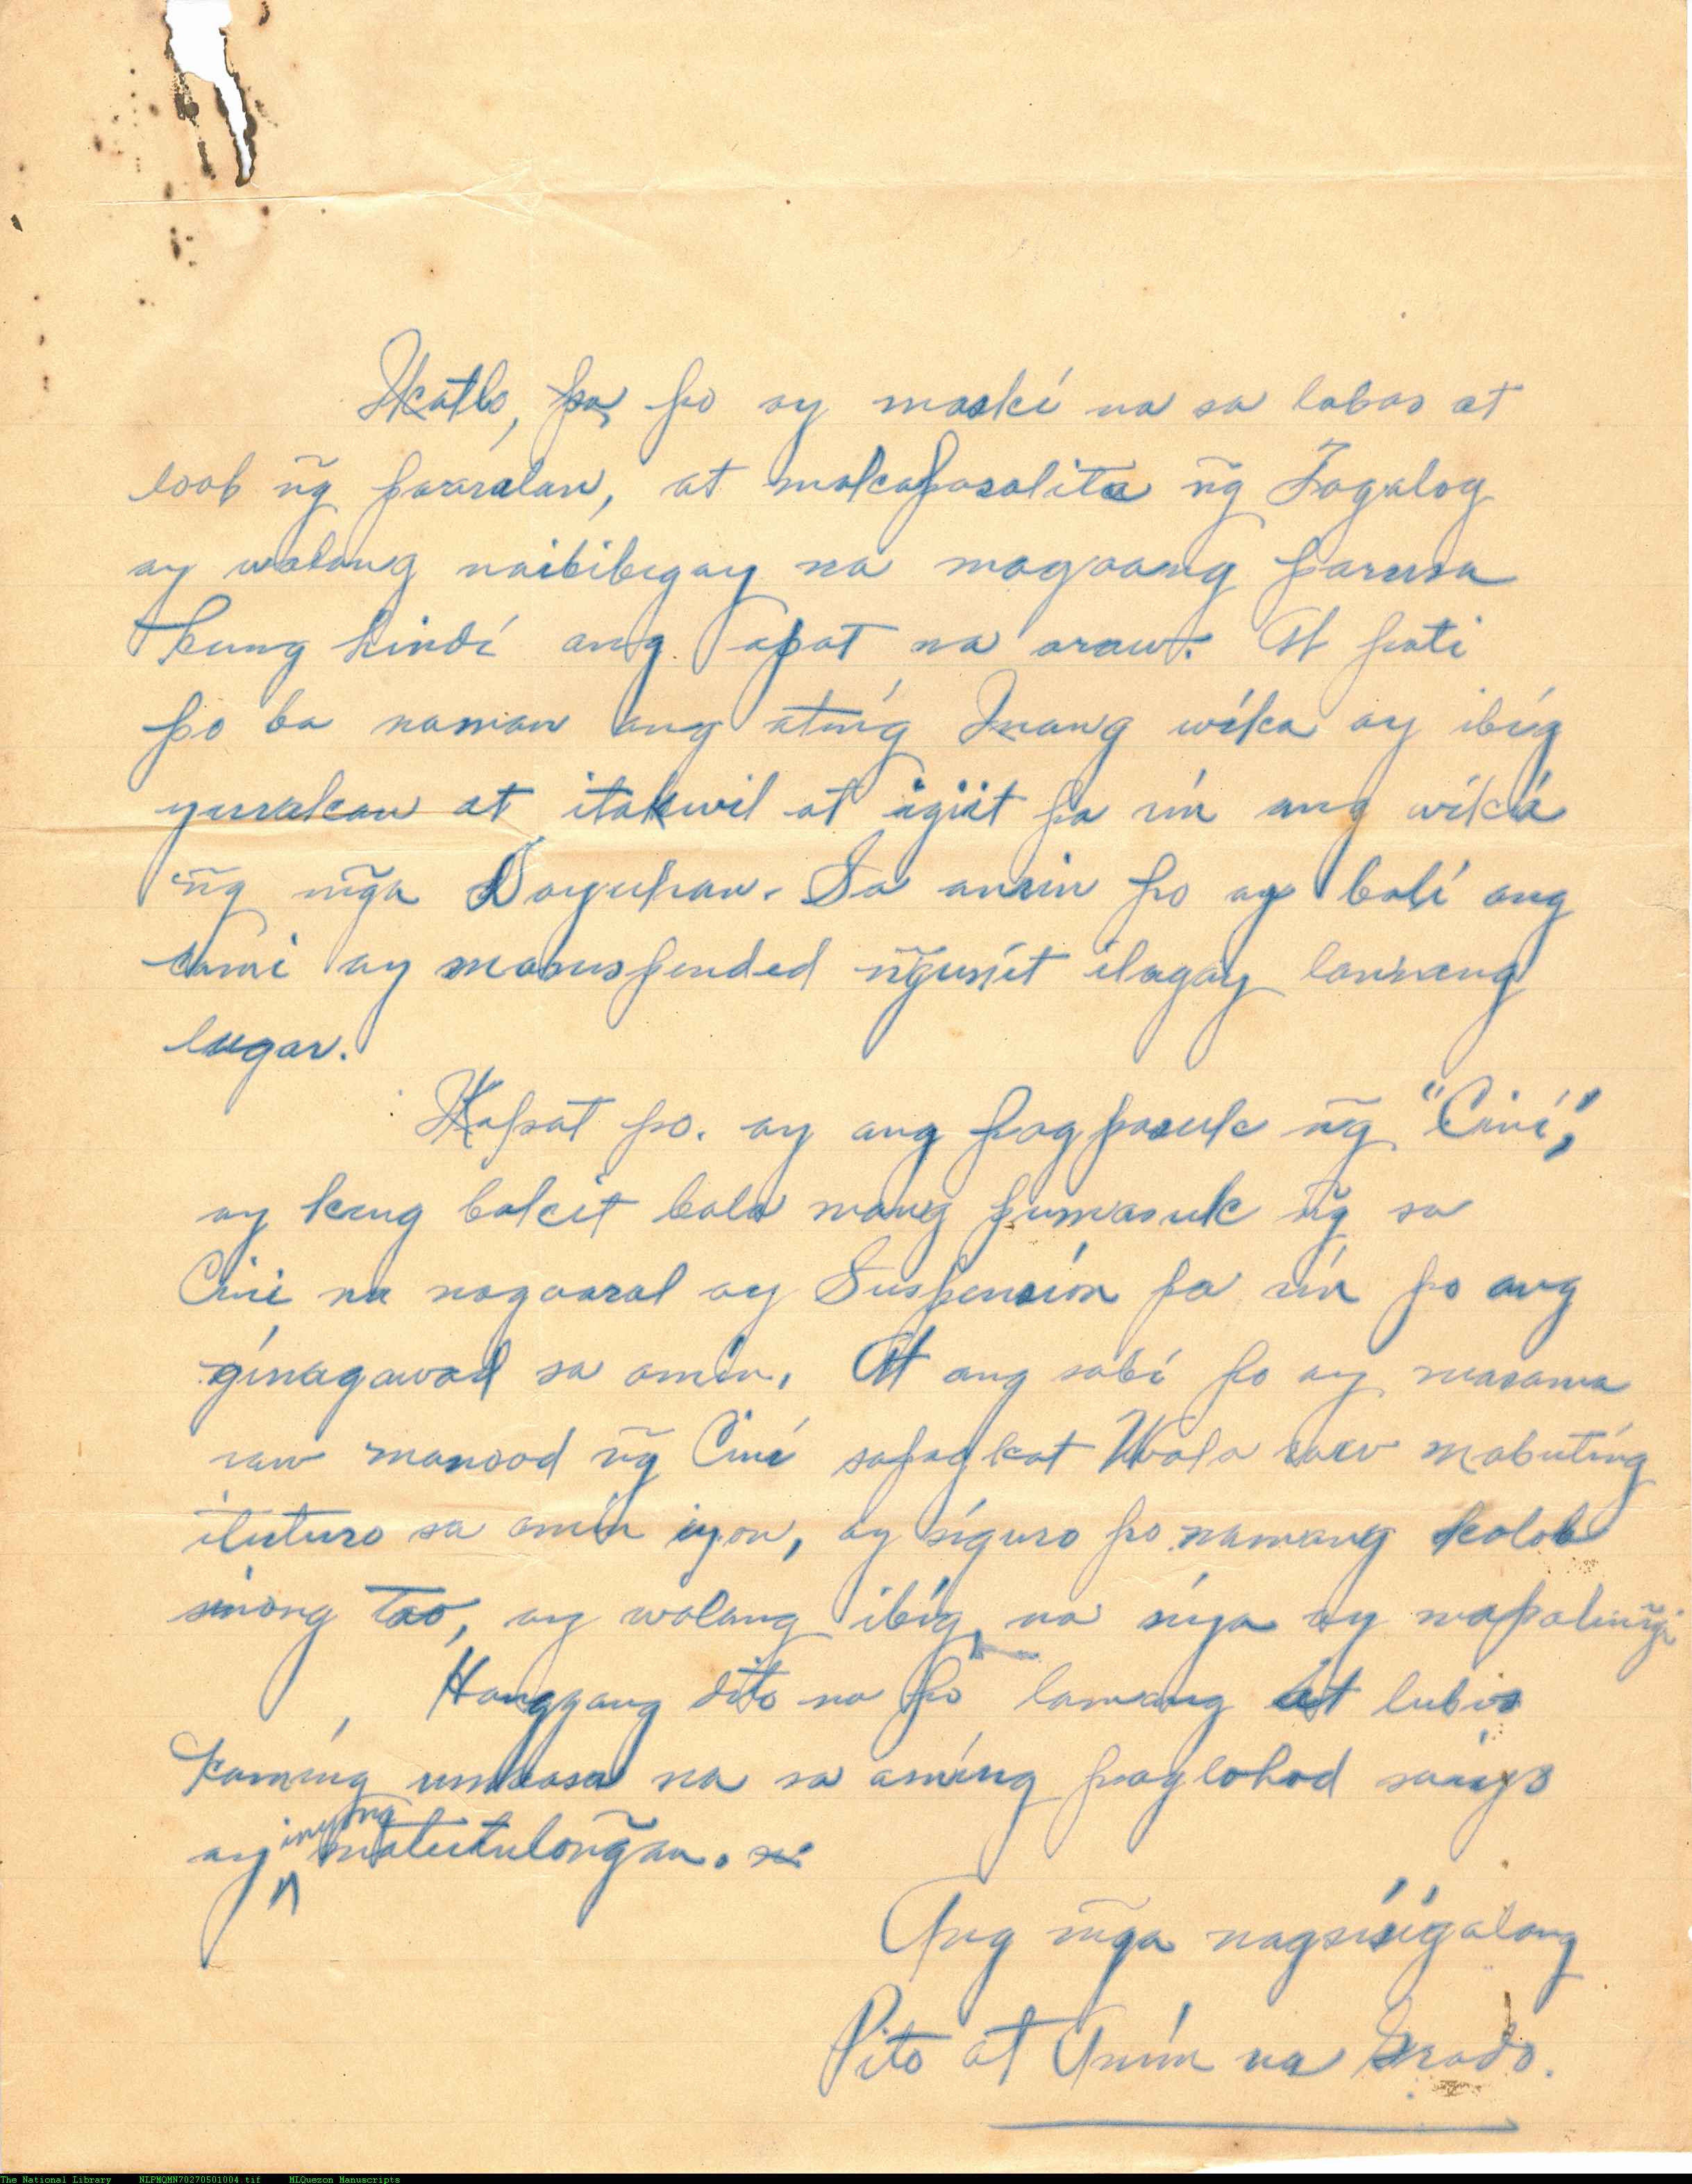 Ikatlo, pa po ay maski na sa labas at
loob ñg paaralan, at makapasalita ñg Tagalog
ay walang naibibigay na magaang parusa
kung hindi ang apat na araw. At pati
po ba naman ang ating Inang wika ay ibig
yurakan at itakwil at igiit pa rin ang wiká
ñg mga Dayuhan. Sa amin po ay bali ang
kami ay masuspended ñgunit ilagay lamang
lugar.
Ikapat po. ay ang pagpasuk ñg "Ciní,"
ay kung bakit bala mang pumasuk ñg sa
Cini na nagaaral ay Suspensión pa rin po ang
ginagawad sa amin. At ang sabi po ay masama
raw manood ñg Ciní sapagkat Wala raw mabuting
ituturo sa amin iyon, ay siguro po namang kalob
sinong tao, ay walang ibig na siya ay mapaling̃
Hanggang dito na po lamang at lubos
kaming umaasa na sa aming paglohod sainyo
ay inyong matutuloñgan.
Ang mg̃a nagsisigalang
Pito at Anim na Grado.
The National Library NLPMQMN70270501004.tif MLQuezon Manuscripts